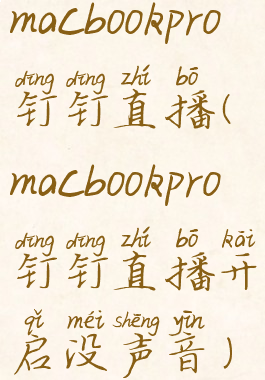 macbookpro
dīng dīng zhí bō
钉钉直播(
macbookpro
dīng dīng zhí bō kāi
钉钉直播开
qǐ méi shēng yīn
启没声音)